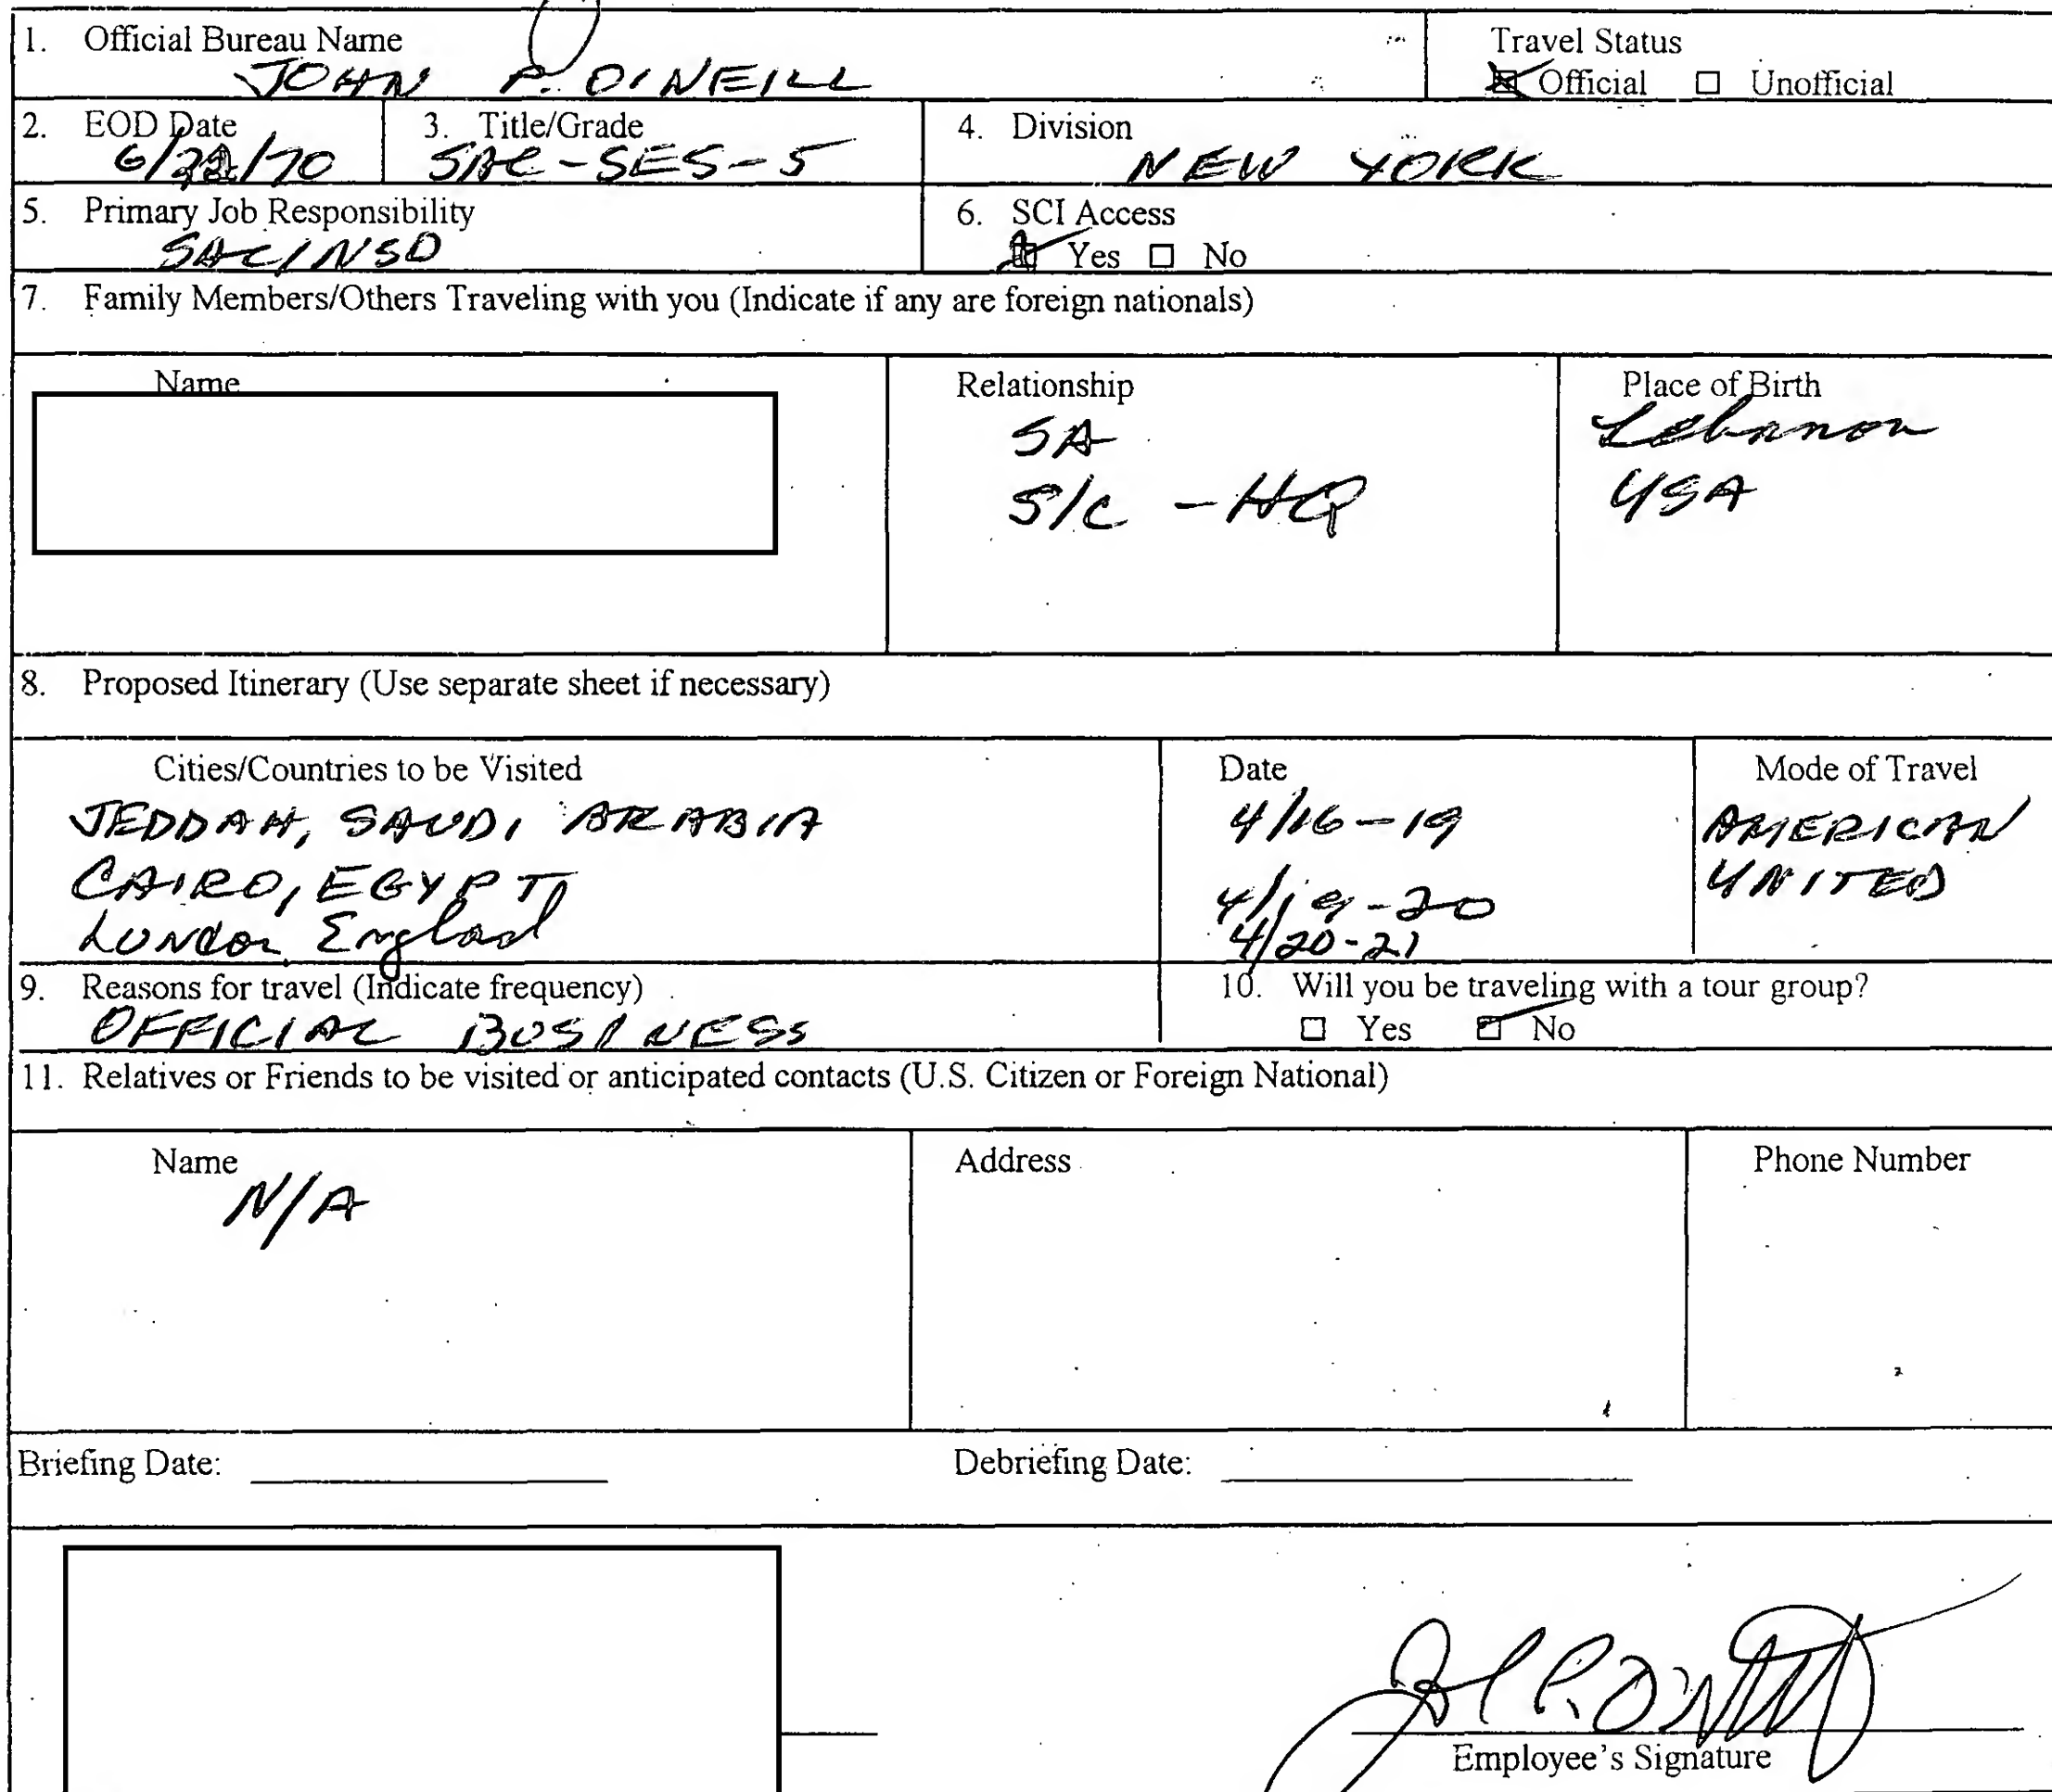 1. Official Bureau Name
JOHN P. O'NEILL
Travel Status
Official Unofficial
2. EOD Date
6/22/70
3. Title/Grade
SAC-SES-5
4. Division
NEW YORK
5. Primary Job Responsibility
SAC/NSD
6. SCI Access
Yes No
7. Family Members/Others Traveling with you (Indicate if any are foreign nationals)
Name Relationship Place of Birth
SA Lebanon
S/C - HQ USA
8. Proposed Itinerary (Use separate sheet if necessary)
Cities/Countries to be Visited Date Mode of Travel
JEDDAH, SAUDI ARABIA 4/16-19 AMERICAN
CAIRO, EGYPT 4/19-20 UNITED
London England 4/20-21
9. Reasons for travel (Indicate frequency)
OFFICIAL BUSINESS
10. Will you be traveling with a tour group?
Yes No
11. Relatives or Friends to be visited or anticipated contacts (U.S. Citizen or Foreign National)
Name Address Phone Number
N/A
Briefing Date: Debriefing Date:
Employee's Signature